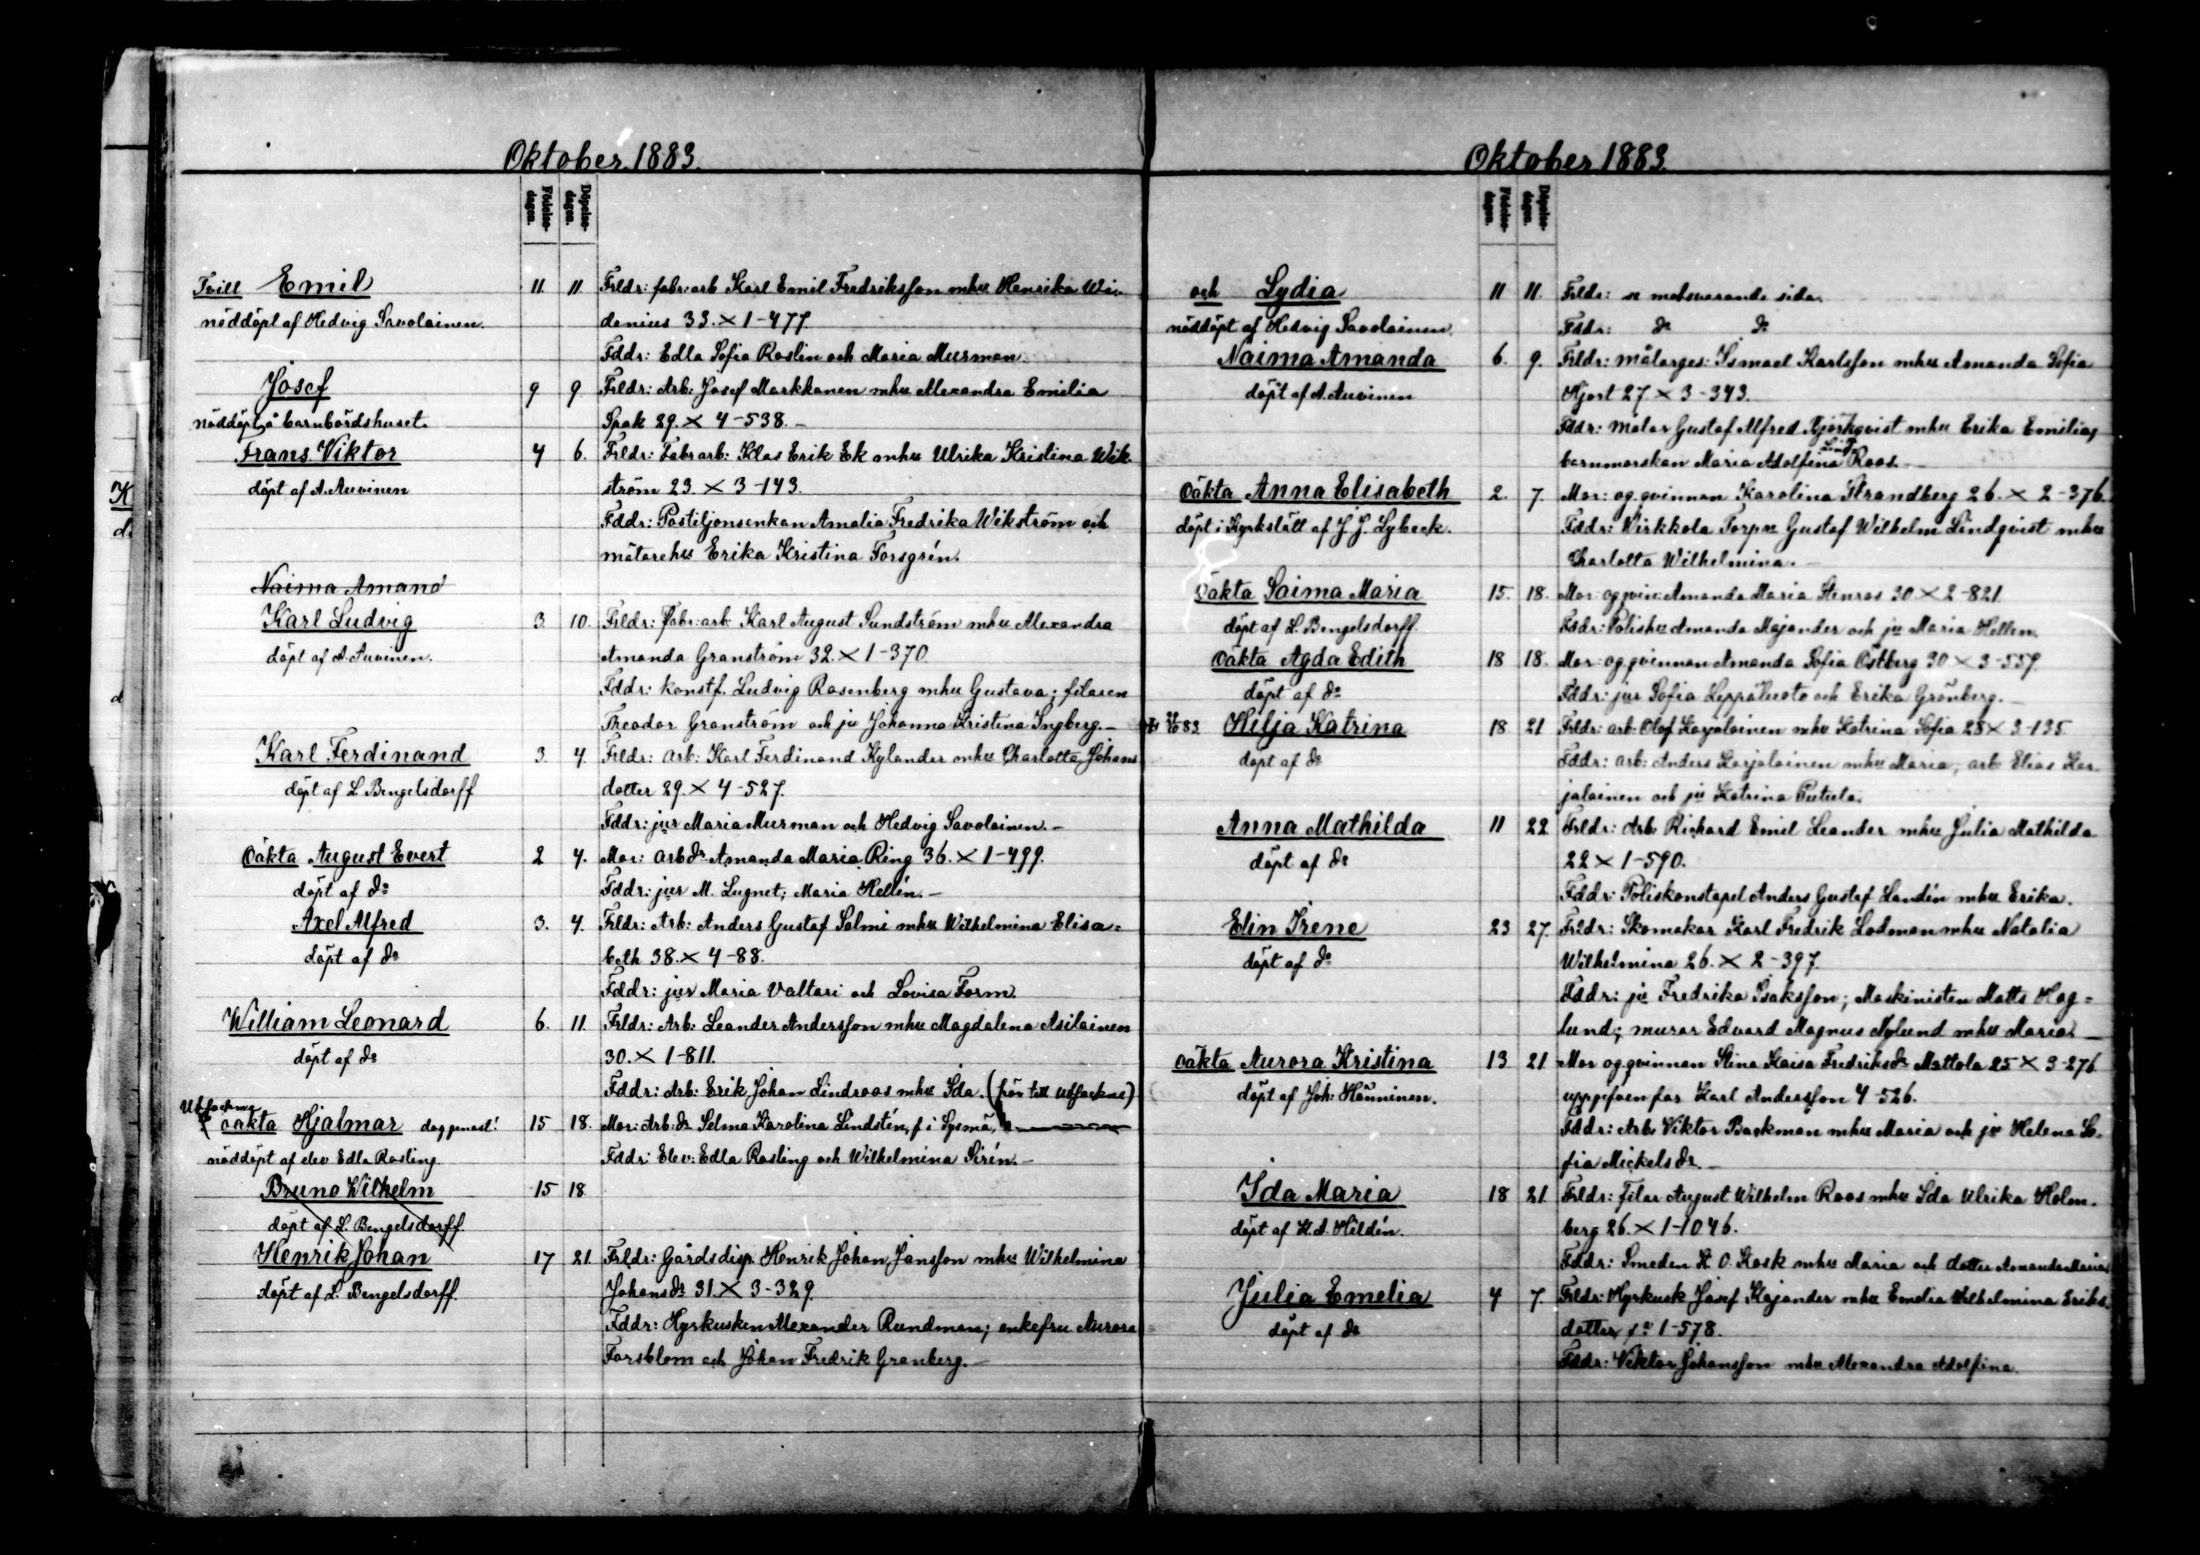 Oktober 1883.
Födelse-dagen.
Döpelse-dagen.
Tvill Emil 11 11 Frldr: fabr:arb Karl Emil Fredriksson mhu Henrika Wi-
nöddöpt af Hedvig Savolainen. denius 33. × 1-477
Fddr: Edla Sofia Roslin och Maria Murman.
Josef 9 9 Frldr: Arb: Josef Markkanen mhu Alexandra Emilia
nöddöpt å barnbördshuset. Spak 29. × 4-538.-
Frans Viktor 4 6. Frldr: Fabr arb: Klas Erik Ek mhu Ulrika Kristina Wik-
döpt af A. Auvinen ström 23. × 3-143.
Fddr: Postiljonsenkan Amalia Fredrika Wikström och
mätarehu Erika Kristina Forsgrén.
Naima Amand
Karl Ludvig 3. 10. Frldr: Fabr:arb: Karl August Sundström mhu Alexandra
döpt af A. Auvinen. Amanda Granström 32. × 1-370
Fddr: konstf. Ludvig Rosenberg mhu Gustava; filaren
Theodor Granström och ju Johanna Kristina Ingberg.-
Karl Ferdinand 3. 4. Frldr: Arb: Karl Ferdinand Kylander mhu Charlotta Johans
döpt af L. Bengelsdorff dotter 29. × 4-527.
Fddr: jur Maria Murman och Hedvig Savolainen.-
Oäkta August Evert 2 4. Mor: arb dr Amanda Maria Ring 36. × 1-499.
döpt af do Fddr: jur M. Lugnet; Maria Hellén.-
Axel Alfred 3. 4. Frldr: Arb: Anders Gustaf Salmi mhu Wilhelmina Elisa-
döpt af do beth 38. × 4-88.
Fddr: jur Maria Valtari och Lovisa Form.
William Leonard 6. 11. Frldr: Arb: Leander Andersson mhu Magdalena Asilainen
döpt af do 30. × 1-811.
Fddr: Arb: Erik Johan Lindroos mhu Ida. (hör till utsockne)
Utsockne
oäkta Hjalmar dog genast! 15 18. Mor: Arb: dr Selma Karolina Lindstén, f i Sysmä,
nöddöpt af elev Edla Rosling. Fddr: Elev: Edla Rosling och Wilhelmina Sirén.-
Bruno Wilhelm 15 18
döpt af L. Bengelsdorff.
Henrik Johan 17 21. Frldr: Gårdsdisp. Henrik Johan Jansson mhu Wilhelmina
döpt af L. Bengelsdorff. Johansdr 31. × 3-329.
Fddr: Hyrkusken Alexander Rundman; enkefru Aurora
Forsblom och Johan Fredrik Granberg.-
Oktober 1883.
Födelse-dagen.
Döpelse-dagen.
och Lydia 11 11. Frldr: se motsvarande sida.
nöddöpt af Hedvig Savolainen. Fddr: do do
Naima Amanda 6. 9. Frldr: målarges: Ismael Karlsson mhu Amanda Sofia
döpt af A. Auvinen Hjort 27 × 3-343.
Fddr: Målar Gustaf Alfred Björkqvist mhu Erika Emilia,
barnmorskan Maria Adolfina Roos.-
Oäkta Anna Elisabeth 2. 7. Mor: og.qvinnan Karolina Strandberg 26. × 2-376.
döpt i Kyrkslätt af J. J. Lybeck. Fddr: Virkkola Torpu Gustaf Wilhelm Lindqvist mhu
Charlotta Wilhelmina.-
Oäkta Saima Maria 15. 18. Mor: og.qvin: Amanda Maria Stenros 30 × 2-821
döpt af L. Bengelsdorff. Fddr: Polishu Amanda Majander och ju Maria Hellén.
Oäkta Agda Edith 18 18. Mor: og.qvinnan Amanda Sofia Östberg 30 × 3-559
döpt af do Fddr: jur Sofia Leppäluoto och Erika Grönberg.-
Hilja Katrina 18 21 Frldr: arb: Olof Karjalainen mhu Katrina Sofia 25 × 3-135
döpt af do Fddr: arb: Anders Karjalainen mhu Maria, arb Elias Kar-
jalainen och ju Katrina
Anna Mathilda 11 22 Frldr: Arb. Richard Emil Leander mhu Julia Mathilda
döpt af do 22 × 1-590.
Fddr: Poliskonstapel Anders Gustaf Landén mhu Erika.
Elin Irene 23 27. Frldr: Skomakar Karl Fredrik Lodman mhu Natalia
döpt af do Wilhelmina 26. × 2-397.
Fddr: ju Fredrika Isaksson; Maskinisten Matts Hag-
lund; murar Edvard Magnus Nylund mhu Maria.-
Oäkta Aurora Kristina 13 21 Mor og.qvinnan Stina Kaisa Fredriksdr Mattola 25 × 3-276
döpt af Joh: Hänninen. uppgifven far Karl Andersson 4-526.
Fddr: Arb. Viktor Backman mhu Maria och ju Helena So-
fia Mickelsdr.-
Ida Maria 18 21 Frldr: Filar August Wilhelm Roos mhu Ida Ulrika Holm-
döpt af K. A. Hildén. berg 26. × 1-1046.
Fddr: Smeden K. O. Kask mhu Maria och dotter Amanda Maria
Julia Emelia 4 7. Frldr: Hyrkusk Josef Kajander mhu Emelia Wilhelmina Eriks-
döpt af do dotter 1-578.
Fddr: Viktor Johansson mhu Alexandra Adolfina.